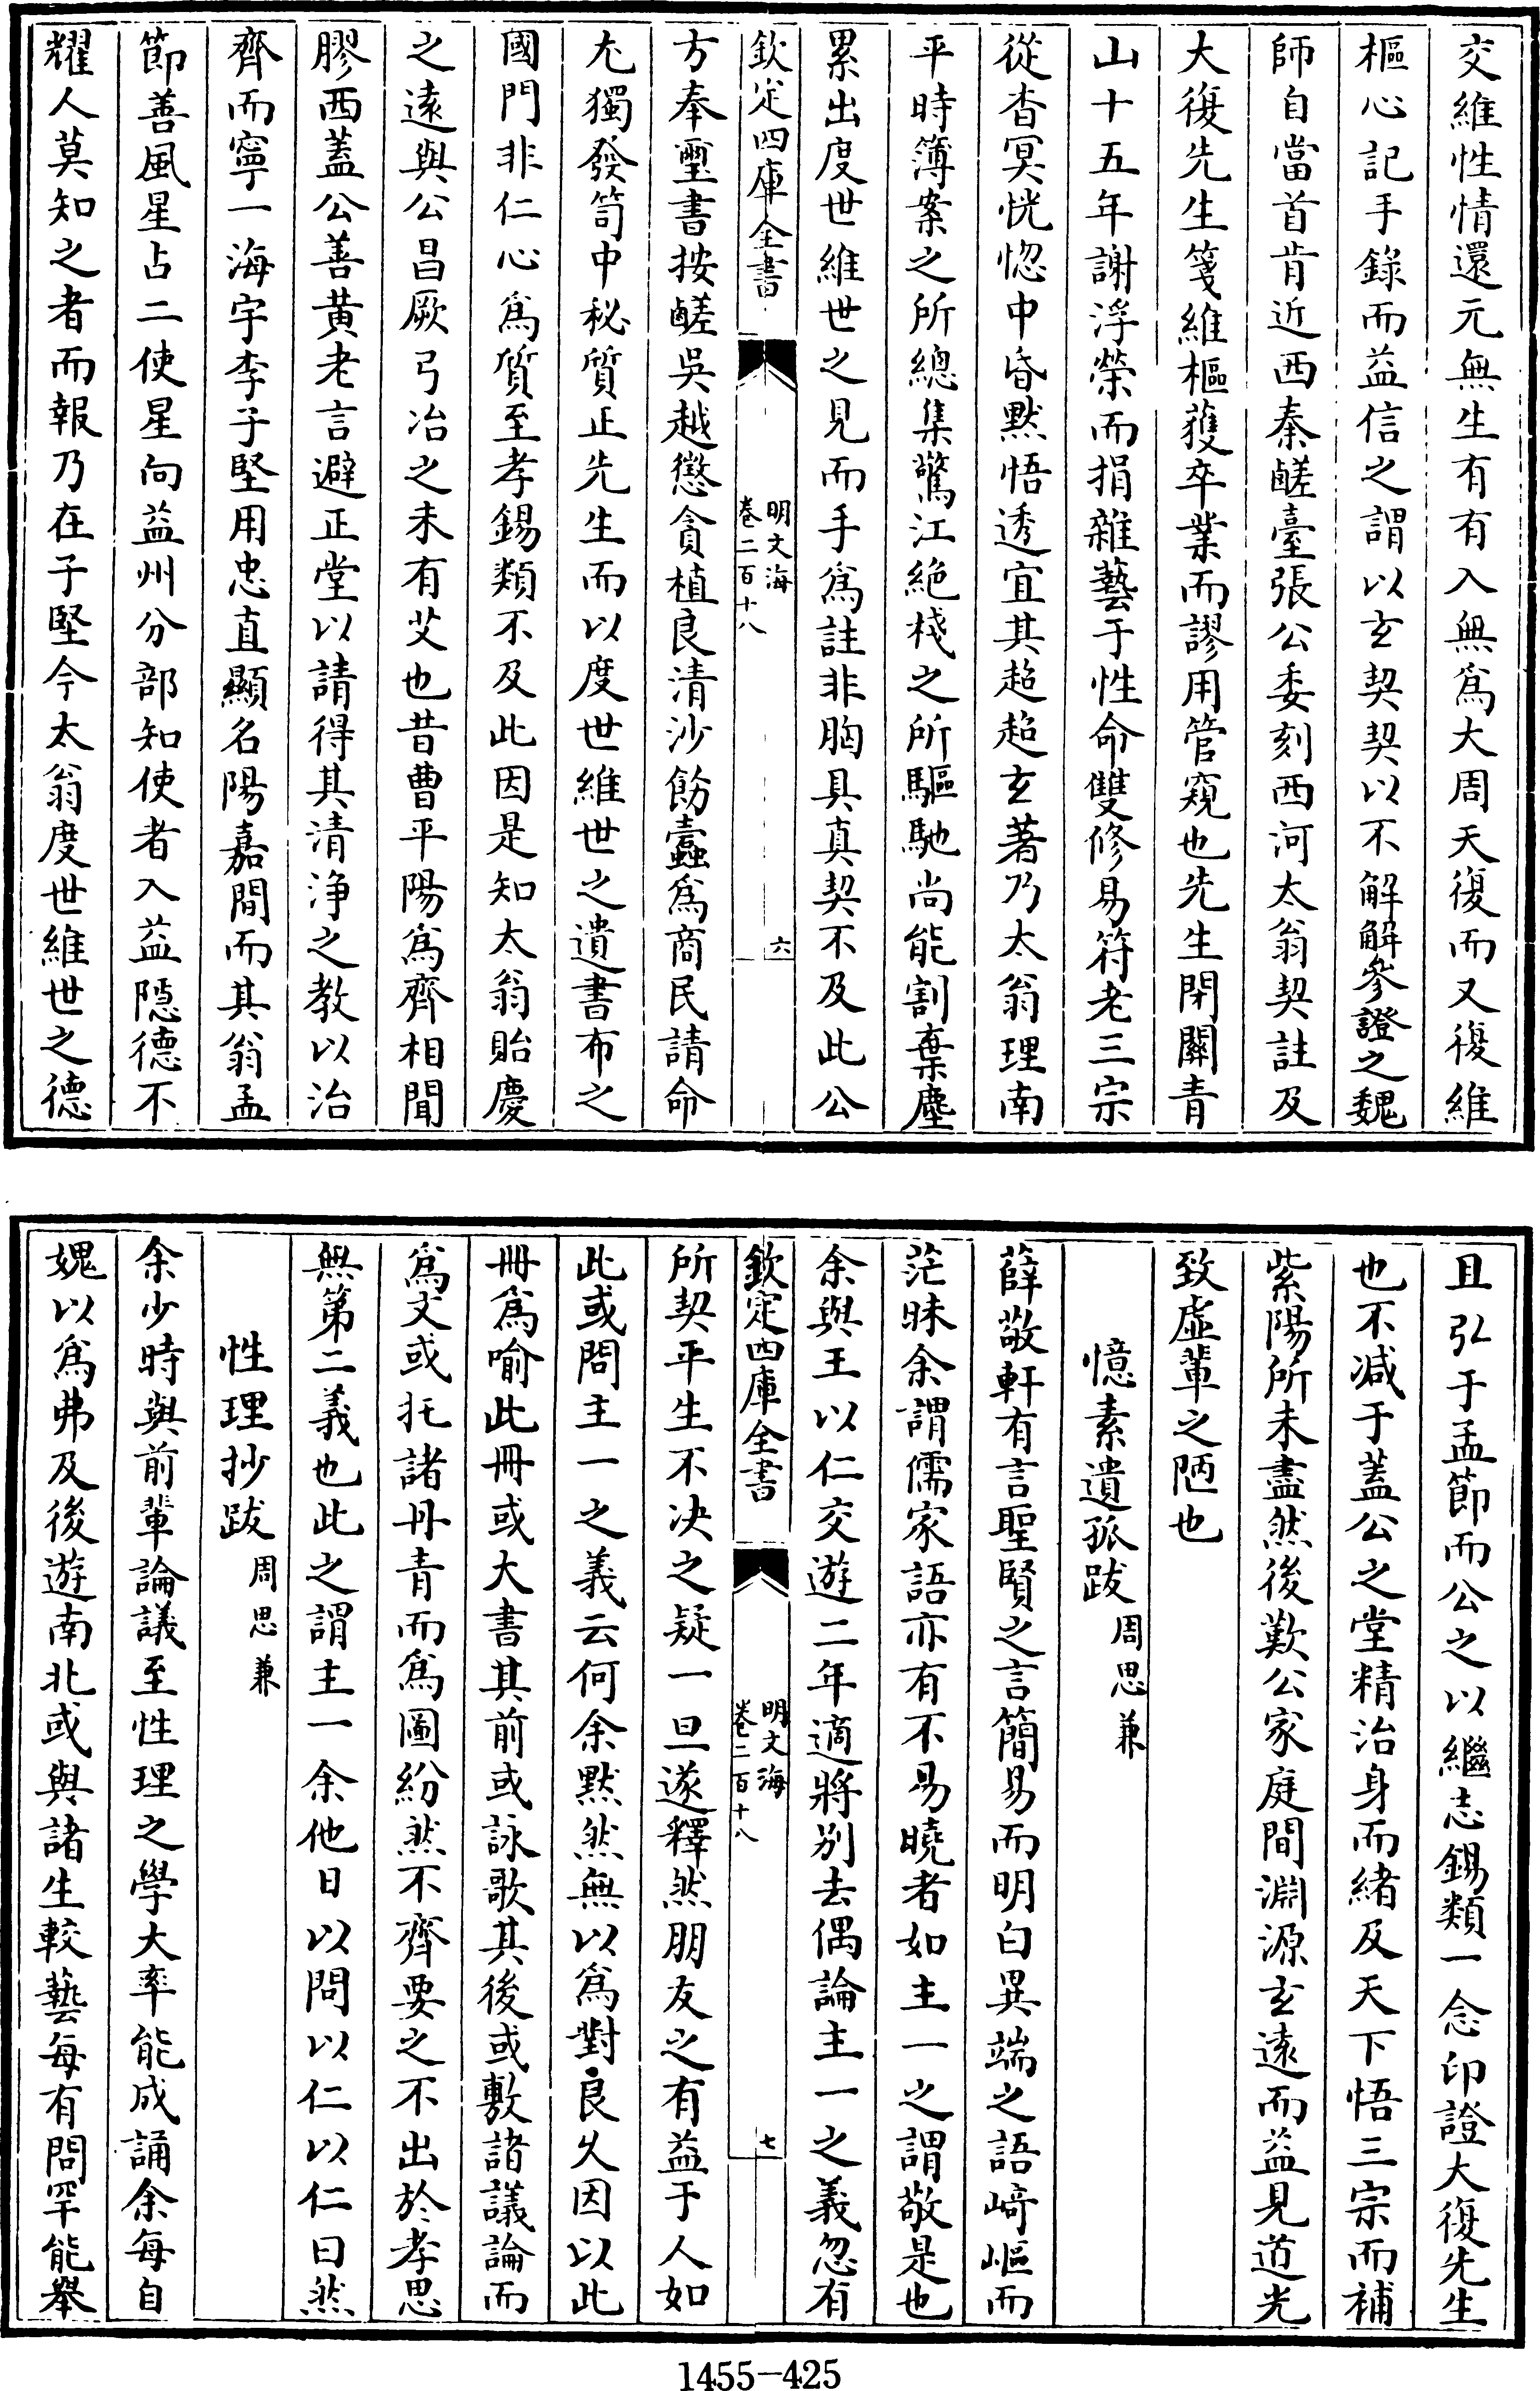 交維性情還元無生有有入無為大周天復而又復維
樞心記手錄而益信之謂以玄契契以不解解參證之魏
師自當首肯近西秦鹺臺張公委刻西河太翁契註及
大復先生箋維樞獲卒業而謬用管窺也先生閉關青
山十五年謝浮榮而捐雜藝于性命雙修易符老三宗
從杳冥恍惚中昏黙悟透宜其超超玄著乃太翁理南
平時簿案之所總集驚江絶棧之所驅馳尚能割棄塵
累出度世維世之見而手為註非胸具真契不及此公
欽定四庫全書
明文海
卷二百十八
六
方奉璽書按鹺吳越懲貪植良清沙飭蠧為商民請命
尤獨發笥中秘質正先生而以度世維世之遺書布之
國門非仁心為質至孝錫類不及此因是知太翁貽慶
之遠與公昌厥弓冶之未有艾也昔曹平陽為齊相聞
膠西蓋公善黄老言避正堂以請得其清浄之教以治
齊而寧一海宇李子堅用忠直顯名陽嘉間而其翁孟
節善風星占二使星向益州分部知使者入益隱德不
耀人莫知之者而報乃在子堅今太翁度世維世之德
且弘于孟節而公之以繼志錫類一念印證大復先生
也不減于蓋公之堂精治身而緒及天下悟三宗而補
紫陽所未盡然後歎公家庭間淵源玄遠而益見道光
致虛輩之陋也
憶素遺孤跋周思兼
薛敬軒有言聖賢之言簡易而明白異端之語﨑嶇而
茫昧余謂儒家語亦有不易曉者如主一之謂敬是也
余與王以仁交遊二年適將别去偶論主一之義忽有
欽定四庫全書
明文海
卷二百十八
七
所契平生不决之疑一旦遂釋然朋友之有益于人如
此或問主一之義云何余黙然無以為對良久因以此
冊為喻此冊或大書其前或詠歌其後或敷諸議論而
為文或托諸丹青而為圖紛然不齊要之不出於孝思
無第二義也此之謂主一余他日以問以仁以仁曰然
性理抄跋周思兼
余少時與前輩論議至性理之學大率能成誦余每自
媿以為弗及後遊南北或與諸生較藝每有問罕能舉
1455-425